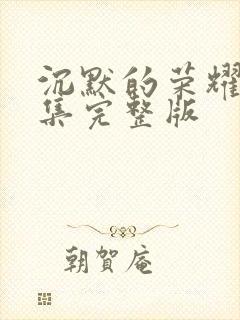 沉默的荣耀
集完整版
朝賀庵